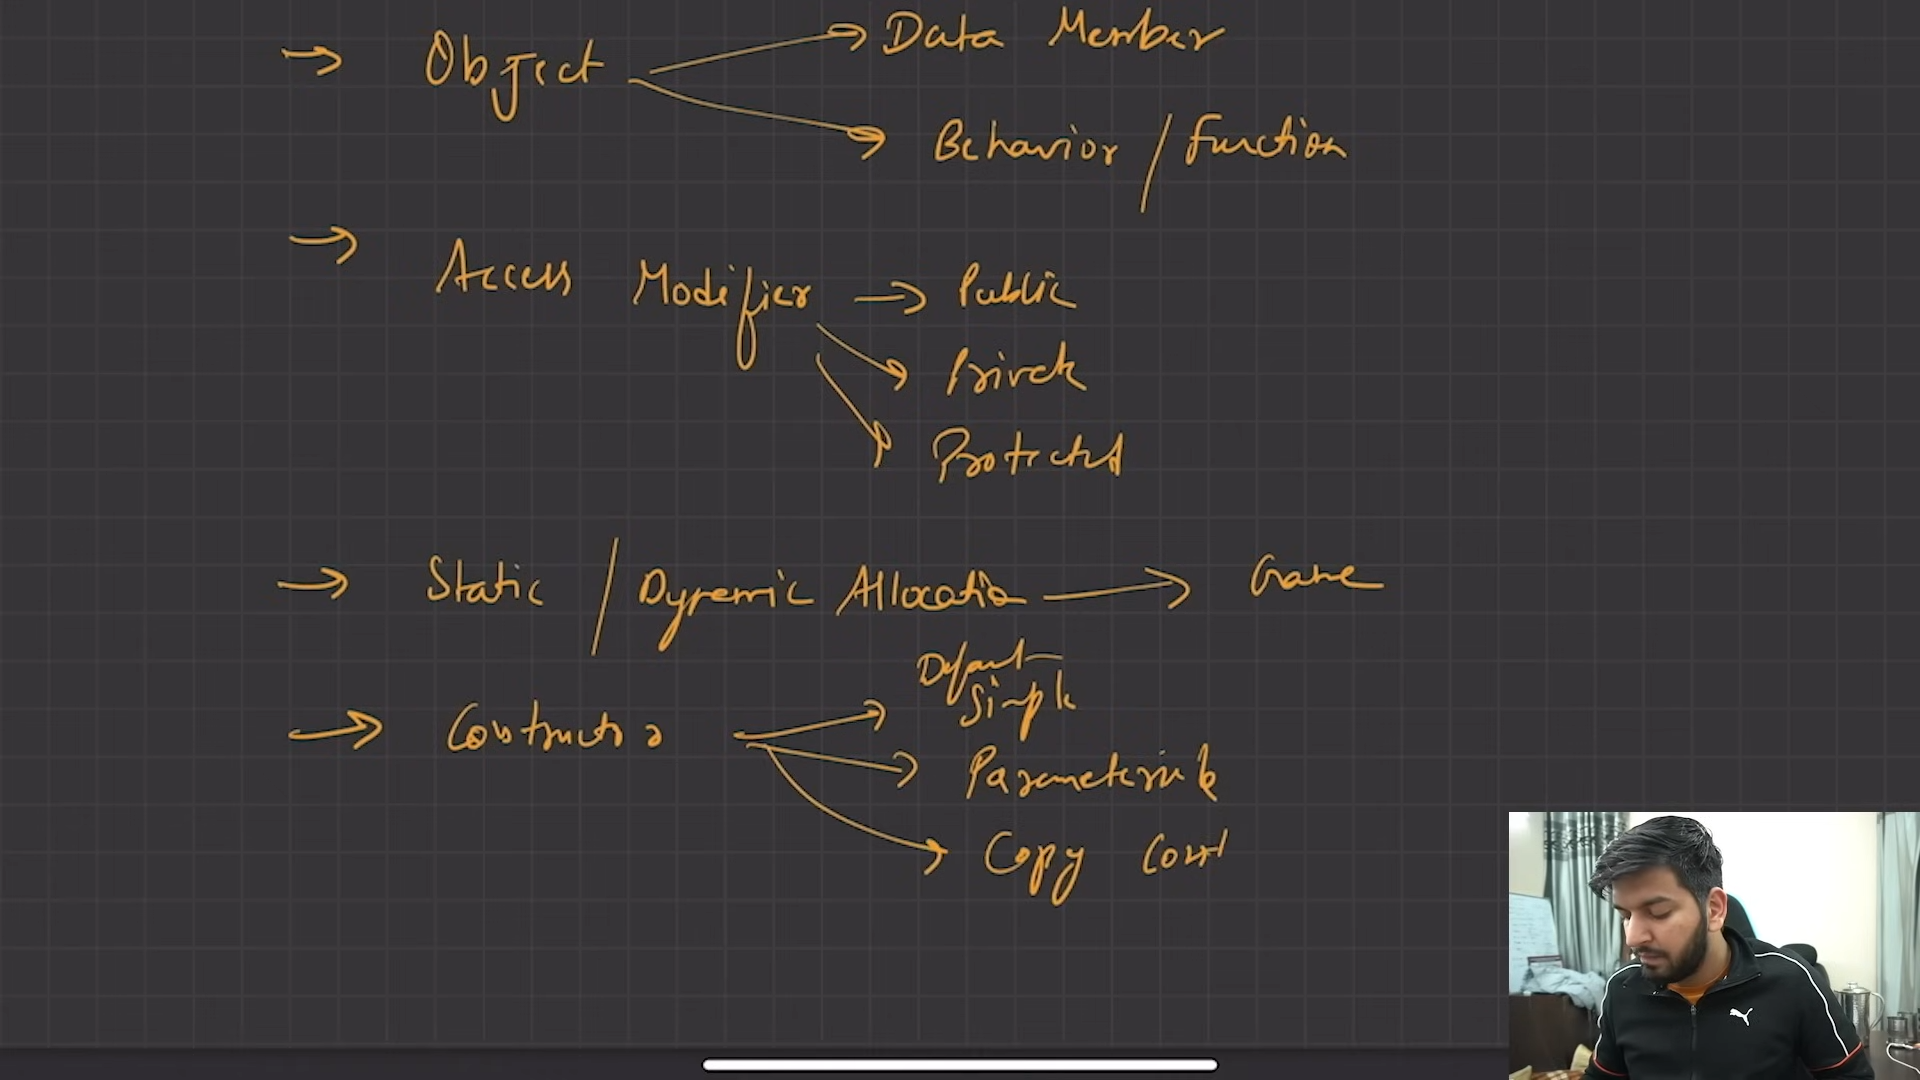 → Object → Data Member
→ Behavior / Function
→ Access Modifier → Public
→ Private
→ Protected
→ Static / Dynamic Allocation → Game
Default
Simple
→ Constructor →
→ Parameterized
→ Copy Const